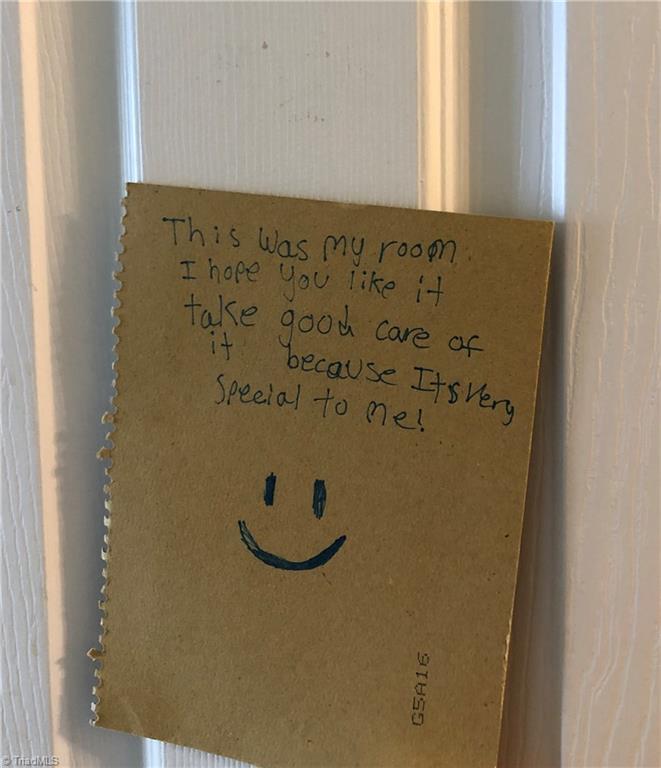 This was my room.
I hope you like it
take good care of
it because Its Very
Special to me!
G5A16
© TriadMLS